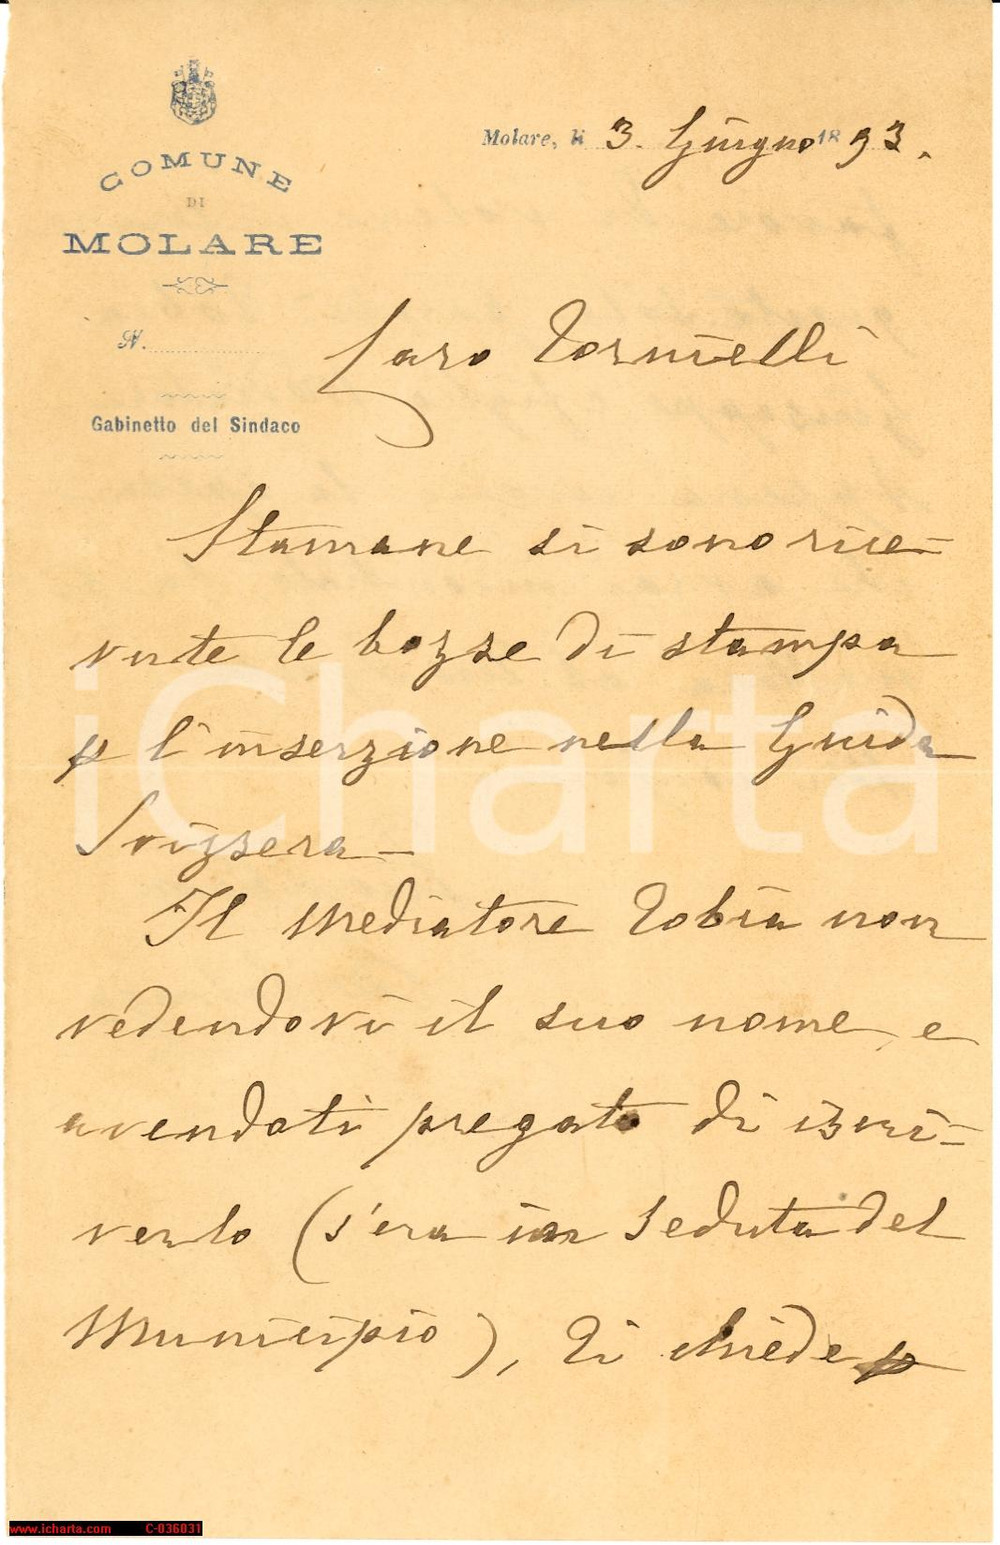 COMUNE
DI
MOLARE
N.
Gabinetto del Sindaco
Molare, li 3. Giugno 1893.
Caro Tornielli
Stamane si sono rice-
vute le bozze di stampa
p l'inserzione nella Guida
Svizzera –
Il mediatore Tobia non
vedendovi il suo nome, e
avendoti pregato di iscri-
verlo (s'era in seduta del
Municipio), ti chiede p
iCharta
www.icharta.com C-036031